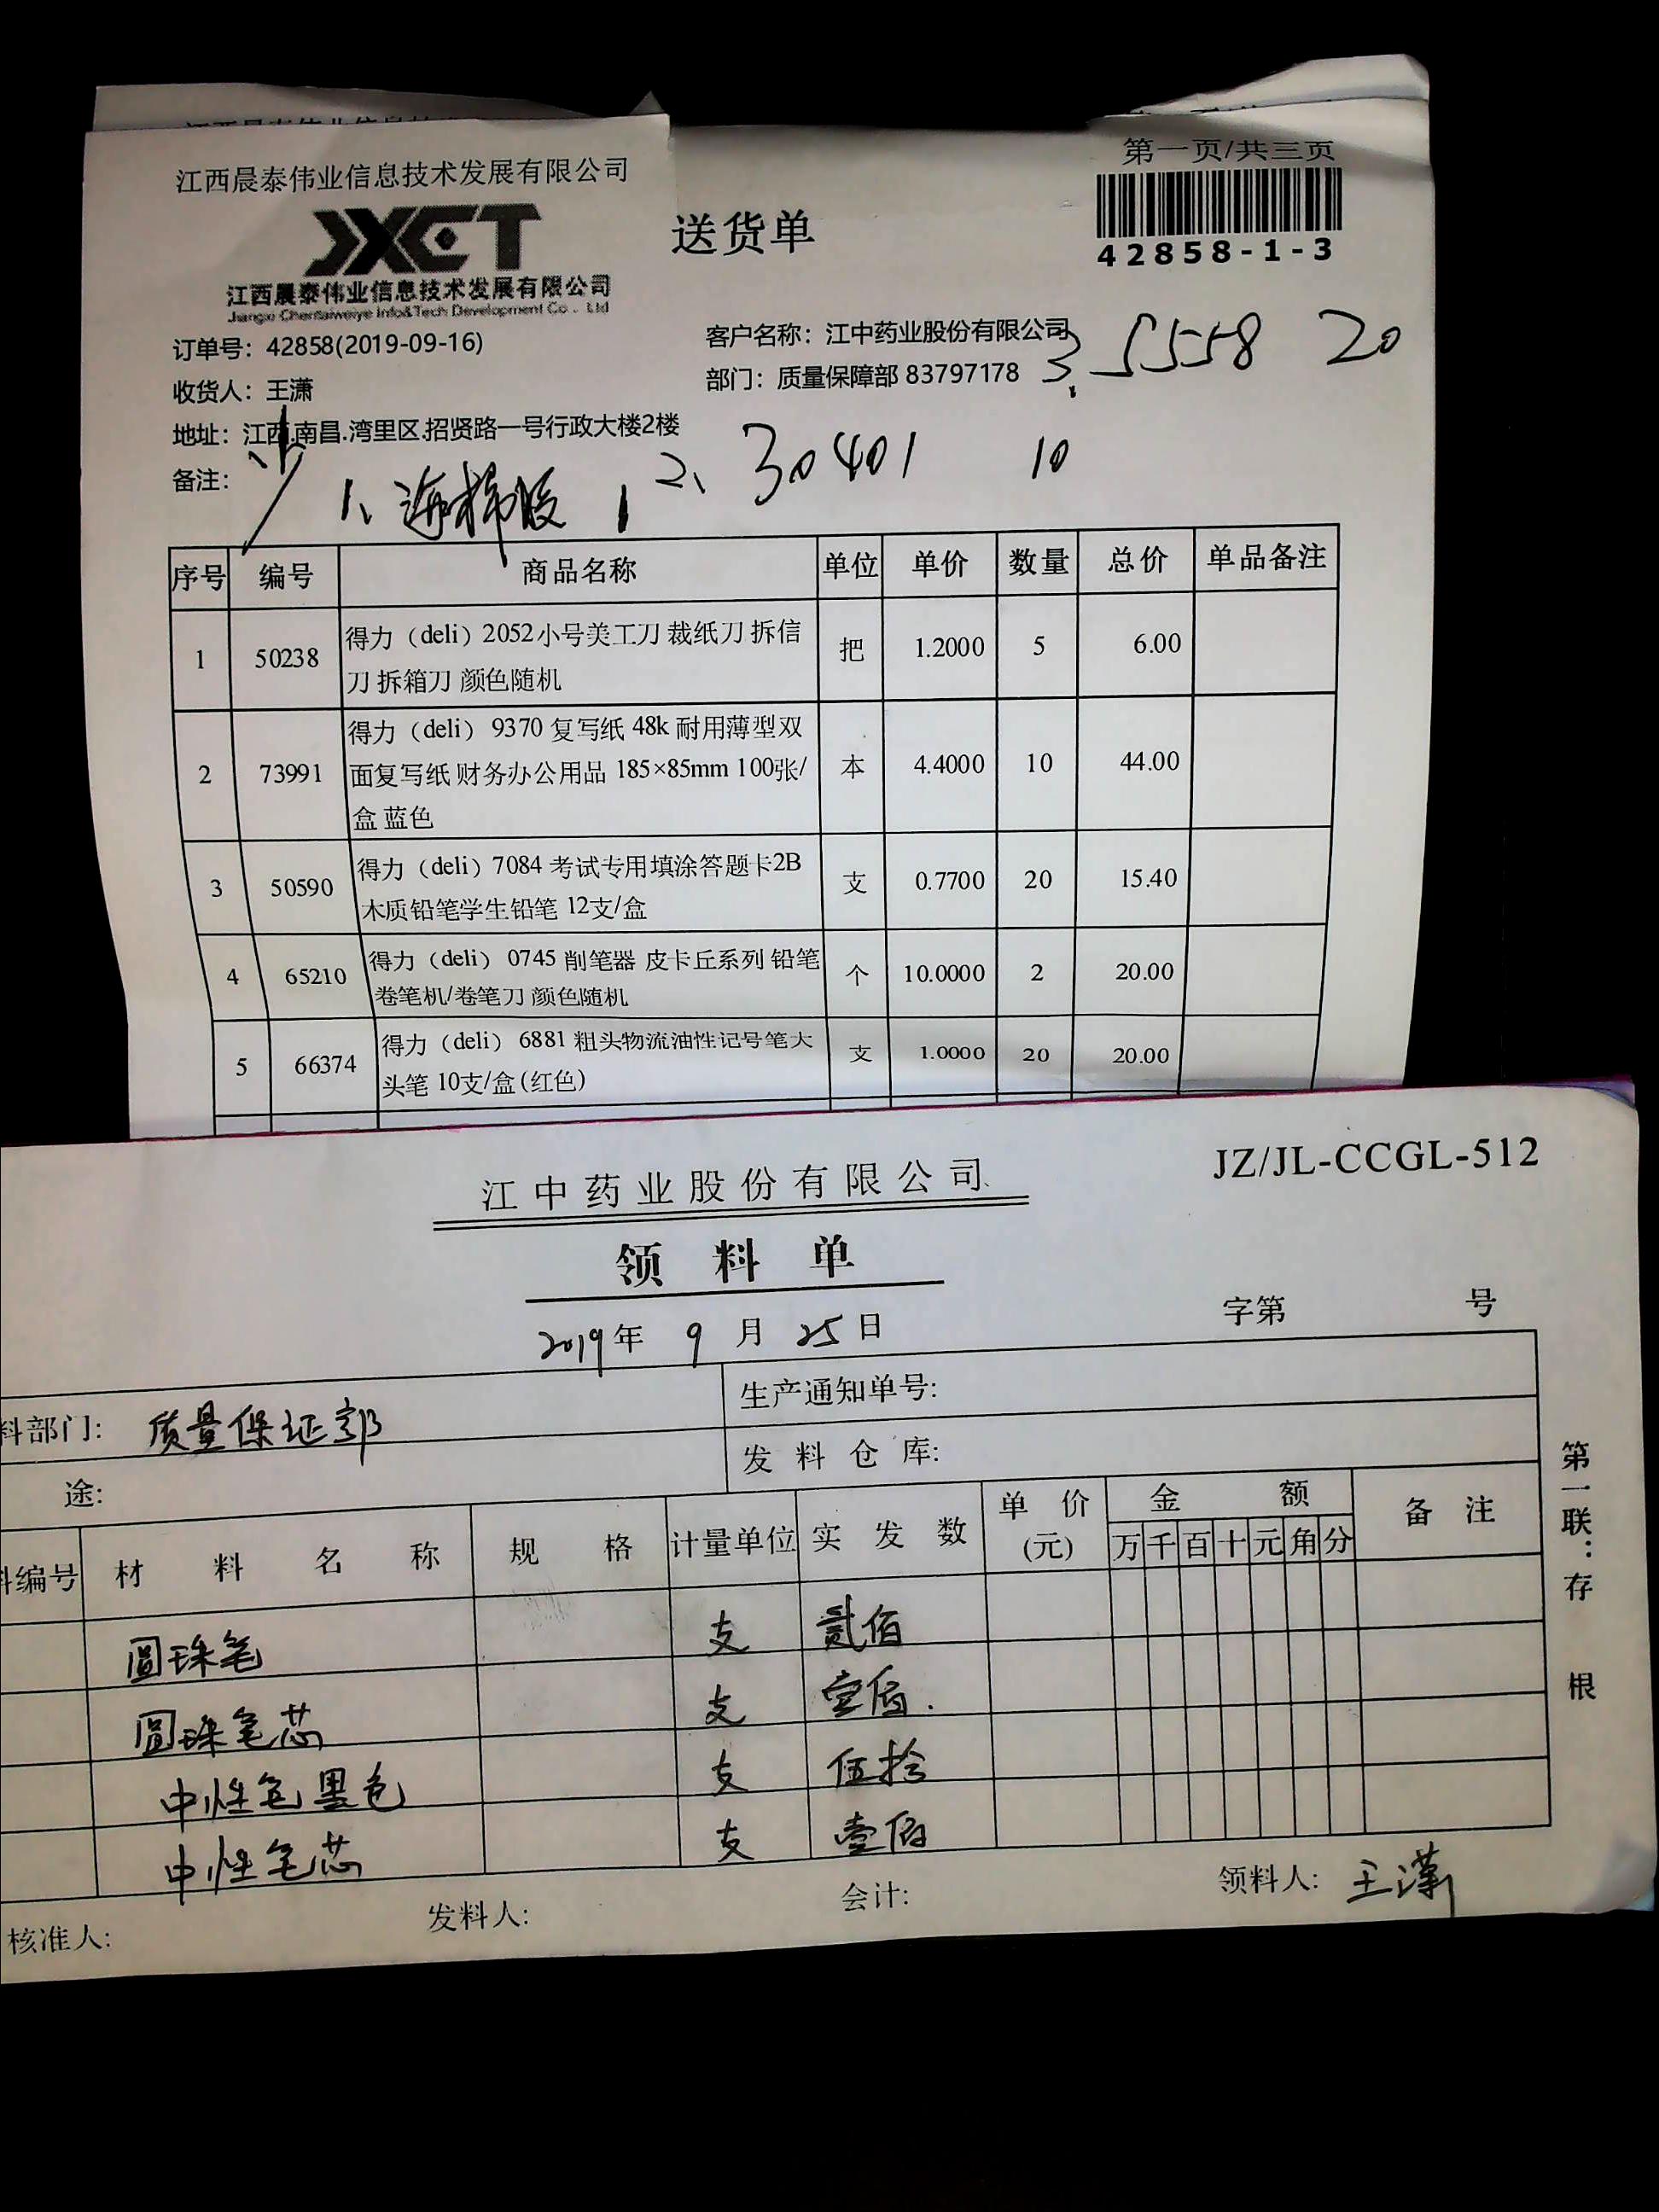 第一页/共三页
江西晨泰伟业信息技术发展有限公司
JXCT
送货单
42858-1-3
江西晨泰伟业信息技术发展有限公司
Jiangxi Chentaiweiye Info&Tech Development Co., Ltd
订单号：42858(2019-09-16) 客户名称：江中药业股份有限公司
3. 5558 20
收货人：王潇 部门：质量保障部 83797178
地址：江西.南昌.湾里区.招贤路一号行政大楼2楼
备注：
1、 1 2、30401 10
序号 编号 商品名称 单位 单价 数量 总价 单品备注
1 50238 得力（deli）2052小号美工刀 裁纸刀 拆信 把 1.2000 5 6.00
刀 拆箱刀 颜色随机
2 73991 得力（deli） 9370 复写纸 48k 耐用薄型双 本 4.4000 10 44.00
面复写纸 财务办公用品 185×85mm 100张/
盒 蓝色
3 50590 得力（deli）7084 考试专用填涂答题卡2B 支 0.7700 20 15.40
木质铅笔学生铅笔 12支/盒
4 65210 得力（deli） 0745 削笔器 皮卡丘系列 铅笔 个 10.0000 2 20.00
卷笔机/卷笔刀 颜色随机
5 66374 得力（deli） 6881 粗头物流油性记号笔大 支 1.0000 20 20.00
头笔 10支/盒(红色)
JZ/JL-CCGL-512
江中药业股份有限公司
领料单
2019年 9月 25日 字第 号
料部门: 质量保证部 生产通知单号:
途: 发料仓库:
料编号 材料名称 规格 计量单位 实发数 单价(元) 金额 备注
万 千 百 十 元 角 分
圆珠笔 支 贰佰
圆珠笔芯 支 壹佰.
中性笔黑色 支 伍拾
中性笔芯 支 壹佰
核准人: 发料人: 会计: 领料人: 王潇
第一联：存根